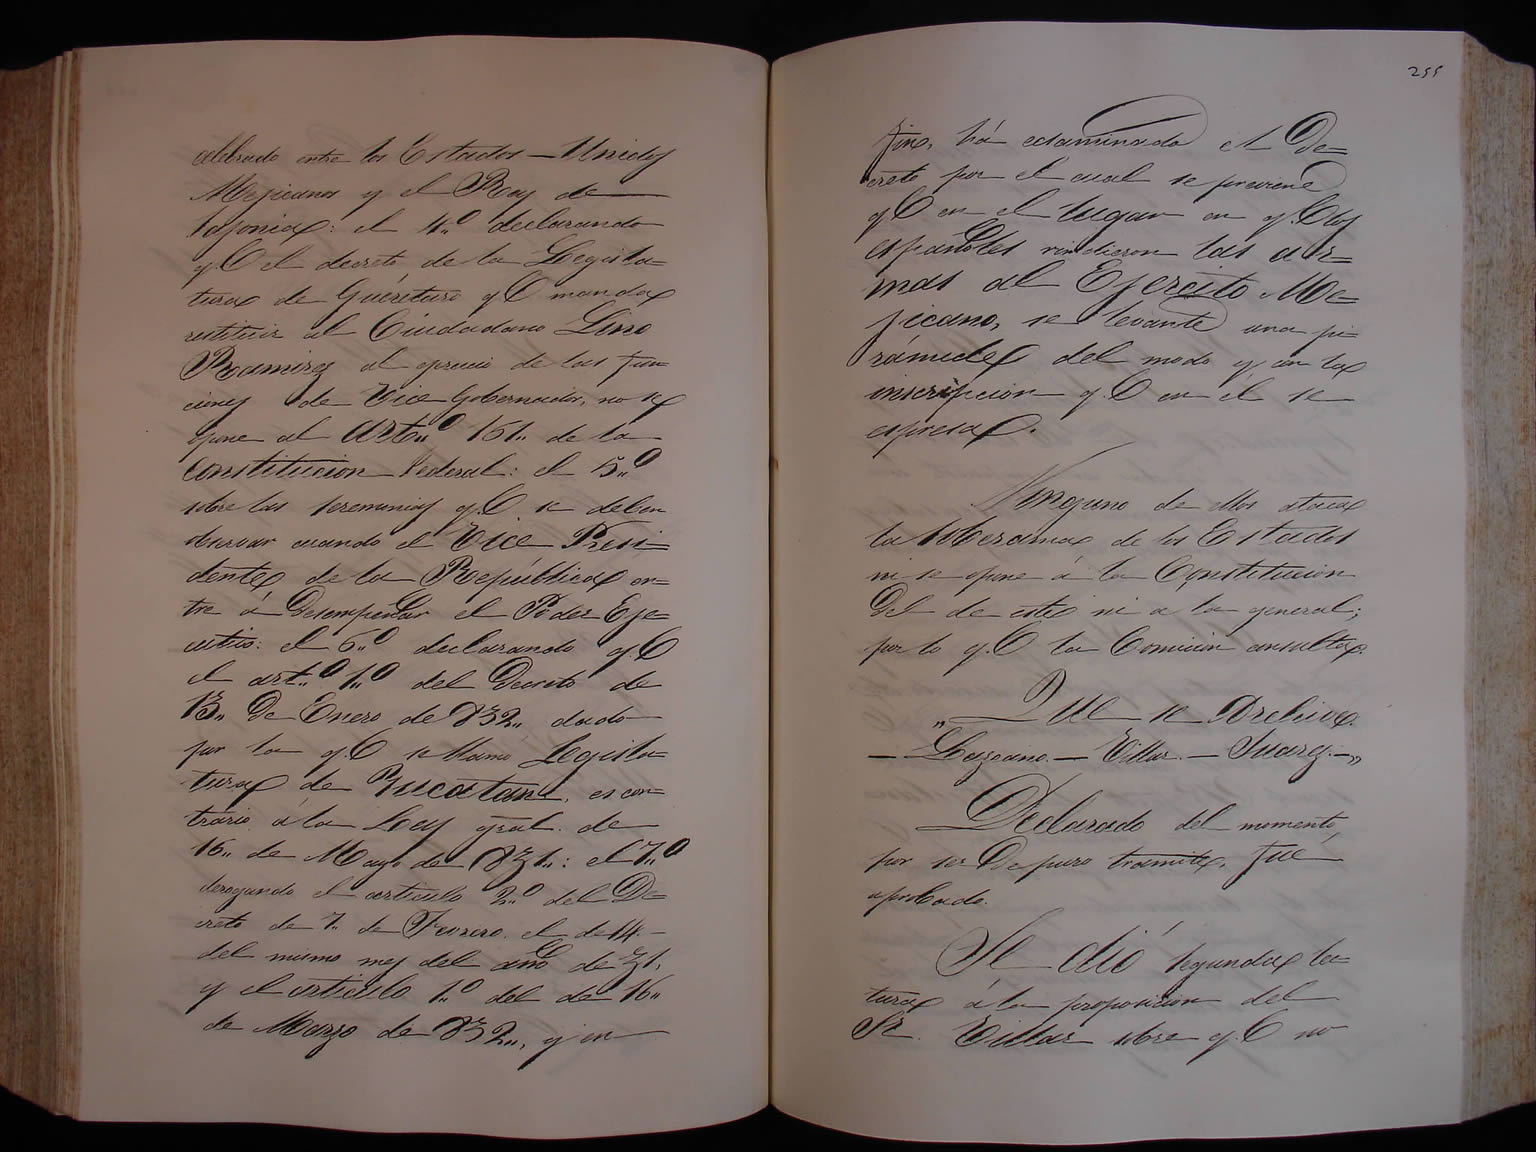 celebrado entre los Estados-Unidos
Mejicanos y el Rey de
Sajonia: el 4.º declarando
q.e el decreto de la Legisla=
tura de Queretaro q.e manda
restituir al Ciudadano Lino
Ramirez al egercicio de las fun=
ciones de Vice Gobernador, no se
opone al art.º 161. de la
Constitucion Federal: el 5.º
sobre las seremonias q.e se deben
observar cuando el Vice Presi=
dente de la República en=
tre á Desempeñar el Poder Eje=
cutivo: el 6.º declarando q.e
el art.º 1.º del Decreto de
13,, De Enero de 832,, dado
por la q.e se llamó Legisla=
tura de Yucatan, es con=
trario á la Ley gral. de
16,, de Mayo de 831,,: el 7.º
derogando el articulo 2.º del De=
creto de 7. de Fevrero, el de 14
del mismo mes del año de 31,
y el articulo 1.º del de 16,,
de Marzo de 832,,, y en
255
fin, há ecsaminado el De=
creto por el cual se previene
q.e en el lugar en q.e los
españoles rindieron las ar=
mas al Ejercito Me=
jicano, se levante una pi=
rámide del modo y con la
inscripcion q.e en él se
espresa.
Ninguno de ellos ataca
la soberania de los Estados
ni se opone á la Constitucion
Del de este ni a la general;
por lo q.e la Comicion consulta.
,,Que se Archive.
- Lazcano. - Villar. - Suarez.-,,
Declarado del momento
por ser De puro tramite, fué
aprobado.
Se dió segunda lec=
tura á la proposicion del
Sr. Villar sobre q.e no